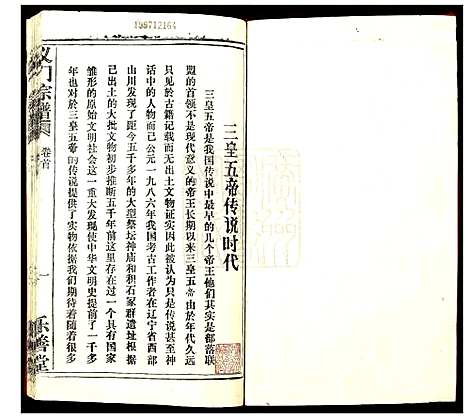 199712164
三皇五帝传说时代
三皇五帝是我国传说中最早的几个帝王他们其实是部落联
盟的首领不是现代意义的帝王长期以来三皇五帝由於年代久远
只见於古籍记载而无出土文物证实因此被认为只是传说甚至神
话中的人物而已公元一九八六年我国考古工作者在辽宁省西部
山川发现了距今五千多年的大型祭坛神庙和积石冢群遗址根据
已出土的大批文物初步推断五千年前这里存在过一个具有国家
雏形的原始文明社会这一重大发现使中华文明史提前了一千多
年也对於三皇五帝的传说提供了实物依据我们期待着随着很多
义门宗谱
卷首
一
乐善堂